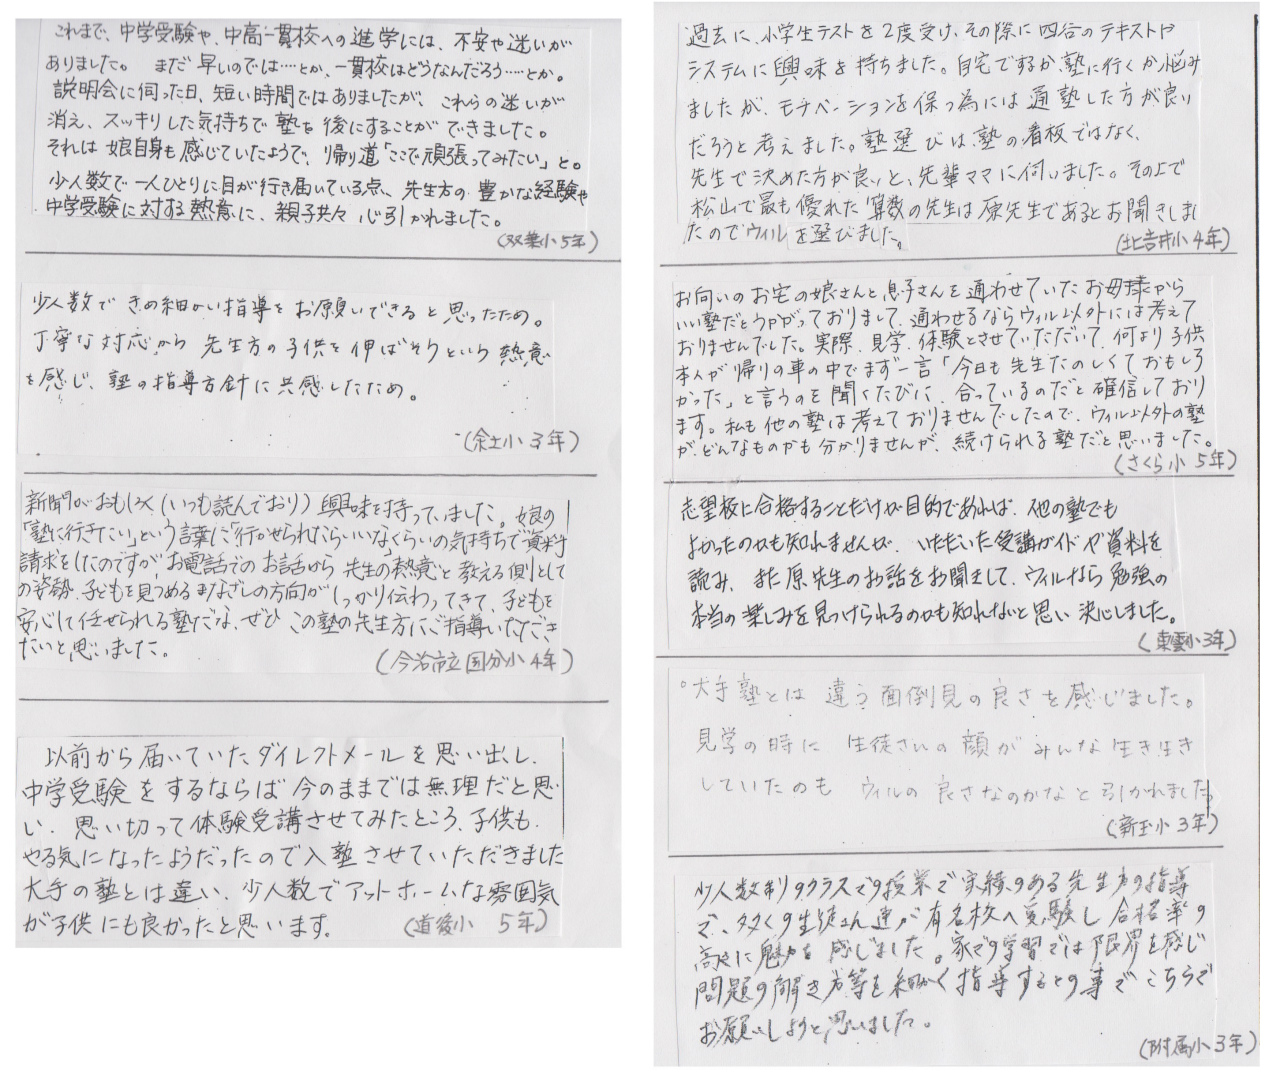 これまで、中学受験や、中高一貫校への進学には、不安や迷いが
ありました。 まだ早いのでは……とか、一貫校はどうなんだろう……とか。
説明会に伺った日、短い時間ではありましたが、これらの迷いが
消え、スッキリした気持ちで塾を後にすることができました。
それは娘自身も感じていたようで、帰り道「ここで頑張ってみたい」と。
少人数で一人ひとりに目が行き届いている点、先生方の豊かな経験や
中学受験に対する熱意に、親子共々心引かれました。
(双葉小5年)
少人数できめ細かい指導をお願いできると思ったため。
丁寧な対応から先生方の子供を伸ばそうという熱意
を感じ、塾の指導方針に共感したため。
(余土小3年)
新聞がおもしろく(いつも読んでおり)興味を持っていました。娘の
「塾に行きたい」という言葉に「行かせられたらいいな」くらいの気持ちで資料
請求をしたのですがお電話でのお話から先生の熱意と教える側として
の姿勢、子どもを見つめるまなざしの方向がしっかり伝わってきて、子どもを
安心して任せられる塾だな、ぜひこの塾の先生方にご指導いただき
たいと思いました。
(今治市立国分小4年)
以前から届いていたダイレクトメールを思い出し、
中学受験をするならば今のままでは無理だと思
い、思い切って体験受講させてみたところ、子供も
やる気になったようだったので入塾させていただきました
大手の塾とは違い、少人数でアットホームな雰囲気
が子供にも良かったと思います。
(道後小 5年)
過去に、小学生テストを2度受け、その際に四谷のテキストや
システムに興味を持ちました。自宅でするか塾に行くか悩み
ましたが、モチベーションを保つ為には通塾した方が良い
だろうと考えました。塾選びは、塾の看板ではなく、
先生で決めた方が良いと、先輩ママに伺いました。その上で
松山で最も優れた算数の先生は原先生であるとお聞きしまし
たのでウィルを選びました。
(北吉井小4年)
お向いのお宅の娘さんと息子さんを通わせていたお母様から
いい塾だとうかがっておりまして、通わせるならウィル以外には考えて
おりませんでした。実際、見学、体験とさせていただいて、何より子供
本人が帰りの車の中でまず一言「今日も先生たのしくておもしろ
かった」と言うのを聞くたびに、合っているのだと確信しており
ます。私も他の塾は考えておりませんでしたので、ウィル以外の塾
がどんなものかも分かりませんが、続けられる塾だと思いました。
(さくら小 5年)
志望校に合格することだけが目的であれば、他の塾でも
よかったのかも知れませんが、いただいた受講ガイドや資料を
読み、また原先生のお話をお聞きして、ウィルなら勉強の
本当の楽しみを見つけられるのかも知れないと思い決心しました。
(東雲小3年)
。大手塾とは違う面倒見の良さを感じました。
見学の時に、生徒さんの顔がみんな生き生き
していたのもウィルの良さなのかなと引かれました。
(新玉小3年)
少人数制のクラスでの授業で実績のある先生方の指導
で、多くの生徒さん達が有名校へ受験し合格率の
高さに魅力を感じました。家での学習では限界を感じ
問題の解き方等を細かく指導するとの事でこちらで
お願いしようと思いました。
(附属小3年)